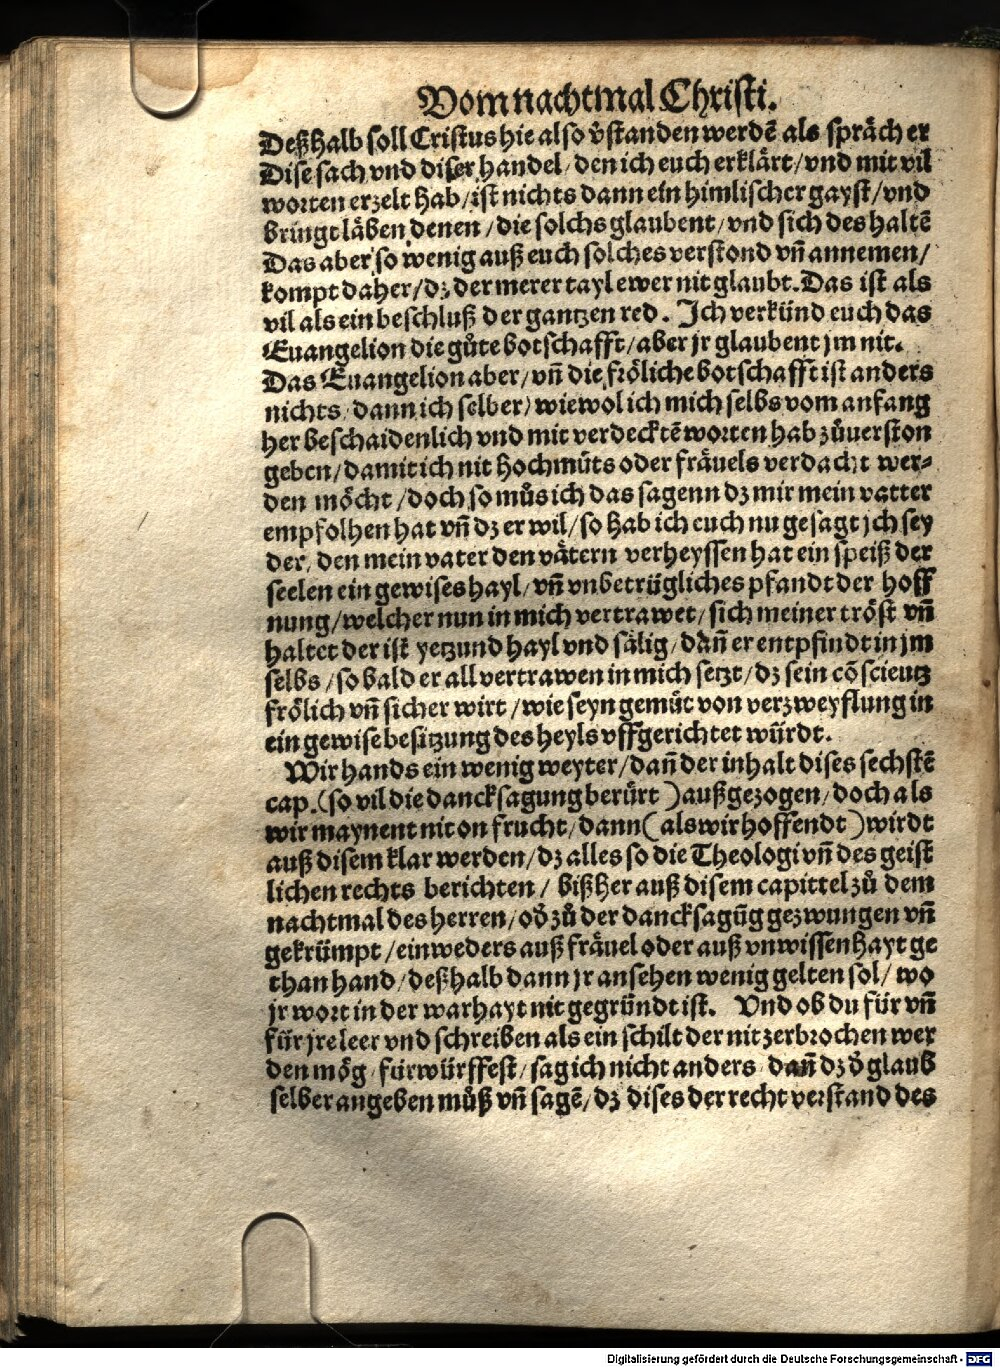 Vom nachtmal Christi.
Deßhalb soll Cristus hie also v̊standen werdē als spräch er
Dise sach vnd diser handel / den ich euch erklärt / vnd mit vil
worten erzelt hab / ist nichts dann ein himlischer gayst / vnd
bringt läben denen / die solchs glaubent / vnd sich des haltē
Das aber so wenig auß euch solches verstond vñ annemen /
kompt daher / dz der merer tayl ewer nit glaubt. Das ist als
vil als ein beschluß der gantzen red. Ich verkünd euch das
Euangelion die gůte botschafft / aber jr glaubent jm nit.
Das Euangelion aber / vñ die fröliche botschafft ist anders
nichts / dann ich selber / wiewol ich mich selbs vom anfang
her beschaidenlich vnd mit verdecktē worten hab zůuerston
geben / damit ich nit hochmůts oder fräuels verdacht wer-
den möcht / doch so můs ich das sagenn dz mir mein vatter
empfolhen hat vñ dz er wil / so hab ich euch nu gesagt jch sey
der / den mein vater den vätern verheyssen hat ein speiß der
seelen ein gewises hayl / vñ vnbetrügliches pfandt der hoff
nung / welcher nun in mich vertrawet / sich meiner tröst vñ
haltet der ist yetzund hayl vnd sälig / dañ er entpfindt in jm
selbs / so bald er all vertrawen in mich setzt / dz sein cōscientz
frölich vñ sicher wirt / wie seyn gemüt von verzweyflung in
ein gewise besitzung des heyls vffgerichtet würdt.
Wir hands ein wenig weyter / dañ der inhalt dises sechstē
cap. (so vil die dancksagung berürt) außgezogen / doch als
wir maynent nit on frucht / dann (als wir hoffendt) wirdt
auß disem klar werden / dz alles so die Theologi vñ des geist
lichen rechts berichten / bißher auß disem capittel zů dem
nachtmal des herren / od̊ zů der dancksagūg gezwungen vñ
gekrümpt / einweders auß fräuel oder auß vnwissenhayt ge
than hand / deßhalb dann jr ansehen wenig gelten sol / wo
jr wort in der warhayt nit gegründt ist. Vnd ob du für vñ
für jre leer vnd schreiben als ein schilt der nit zerbrochen wer
den mög / fürwürffest / sag ich nicht anders dañ dz d̊ glaub
selber angeben můß vñ sagē / dz dises der recht verstand des
Digitalisierung gefördert durch die Deutsche Forschungsgemeinschaft - DFG